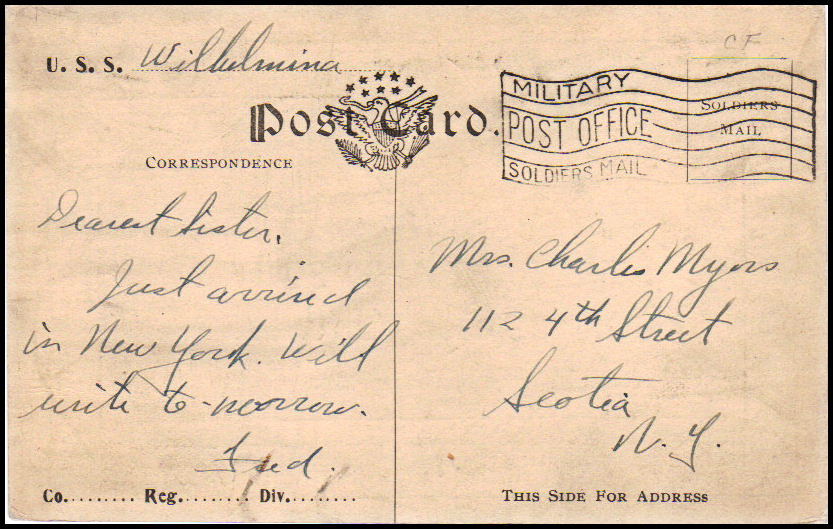 CF
U. S. S. Wilhelmina
Post Card.
MILITARY
POST OFFICE
SOLDIERS MAIL
SOLDIERS
MAIL
CORRESPONDENCE
Dearest Sister,
Just arrived
in New York. Will
write to-morrow.
Fred.
Co......... Reg......... Div.........
Mrs. Charlie Myers
112 4th Street
Scotia
N. Y.
THIS SIDE FOR ADDRESS